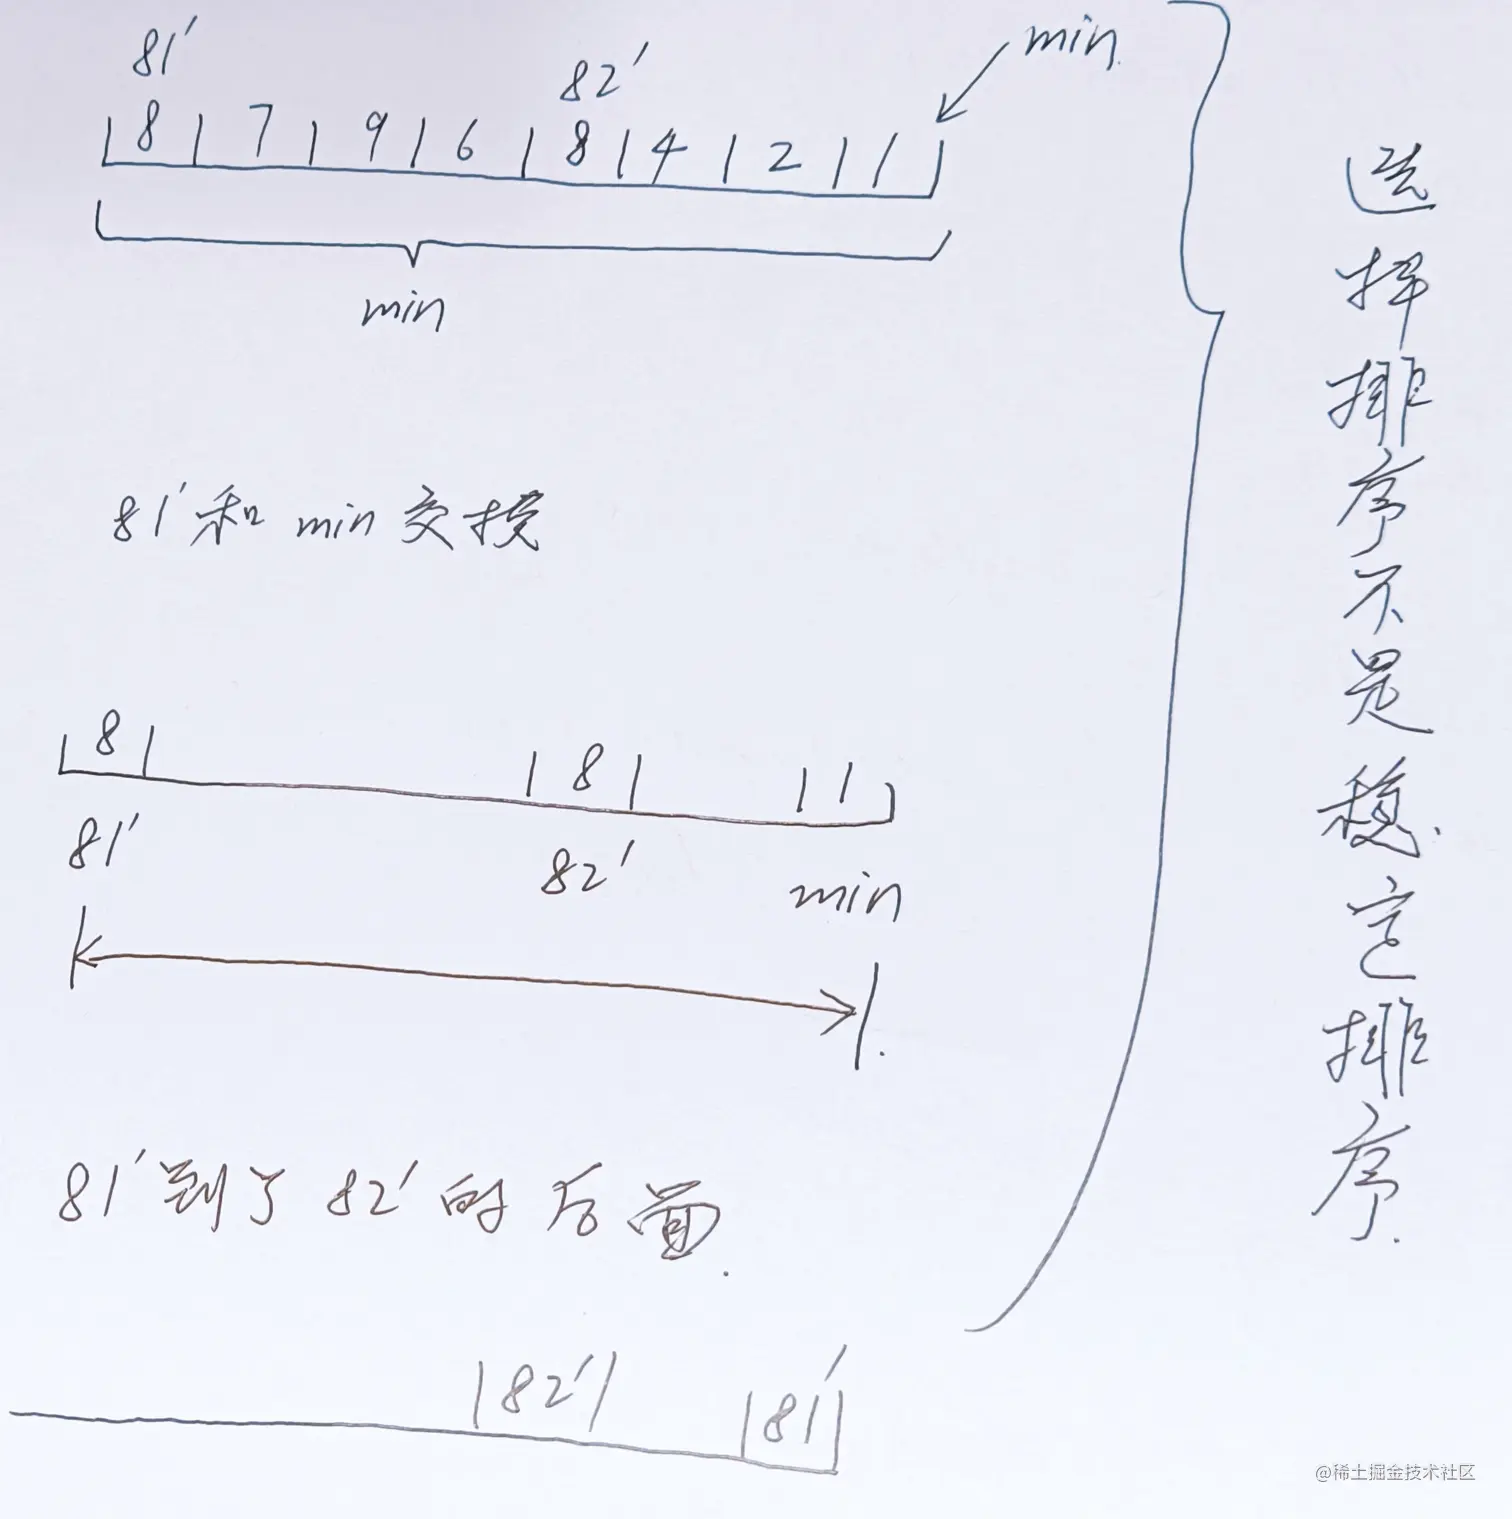 81'
82'
min
8 7 9 6 8 4 2 1
min
81'和 min 交换
8 8 1
81' 82' min
81'到了 82'的后面.
82' 81'
选择排序不是稳定排序.
@稀土掘金技术社区